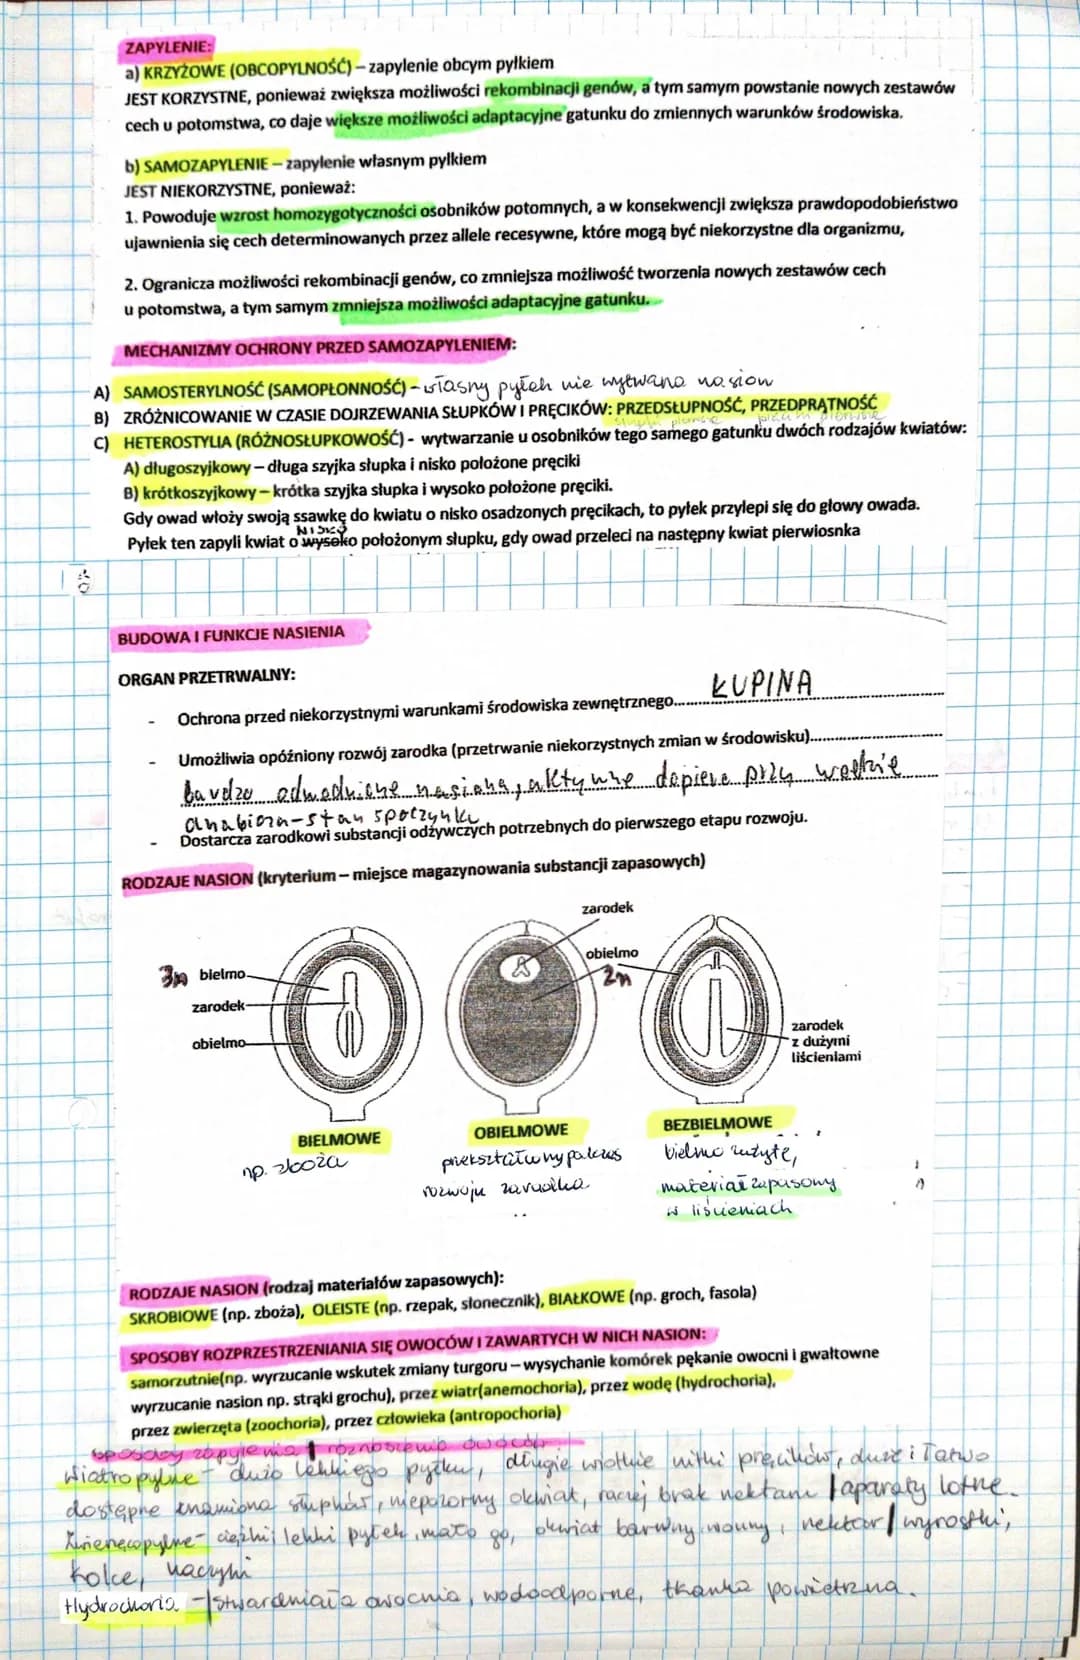 ZAPYLENIE:
a) KRZYŻOWE (OBCOPYLNOŚĆ) – zapylenie obcym pyłkiem
JEST KORZYSTNE, ponieważ zwiększa możliwości rekombinacji genów, a tym samym powstanie nowych zestawów
cech u potomstwa, co daje większe możliwości adaptacyjne gatunku do zmiennych warunków środowiska.
b) SAMOZAPYLENIE – zapylenie własnym pylkiem
JEST NIEKORZYSTNE, ponieważ:
1. Powoduje wzrost homozygotyczności osobników potomnych, a w konsekwencji zwiększa prawdopodobieństwo
ujawnienia się cech determinowanych przez allele recesywne, które mogą być niekorzystne dla organizmu,
2. Ogranicza możliwości rekombinacji genów, co zmniejsza możliwość tworzenia nowych zestawów cech
u potomstwa, a tym samym zmniejsza możliwości adaptacyjne gatunku.
MECHANIZMY OCHRONY PRZED SAMOZAPYLENIEM:
A) SAMOSTERYLNOŚĆ (SAMOPŁONNOŚĆ) – własny pyłek nie wytwarza nasion
B) ZRÓŻNICOWANIE W CZASIE DOJRZEWANIA SŁUPKÓW I PRĘCIKÓW: PRZEDSŁUPNOŚĆ, PRZEDPRĄTNOŚĆ
C) HETEROSTYLIA (RÓŻNOSŁUPKOWOŚĆ) - wytwarzanie u osobników tego samego gatunku dwóch rodzajów kwiatów:
A) długoszyjkowy – długa szyjka słupka i nisko położone pręciki
B) krótkoszyjkowy – krótka szyjka słupka i wysoko położone pręciki.
Gdy owad włoży swoją ssawkę do kwiatu o nisko osadzonych pręcikach, to pyłek przylepi się do głowy owada.
NISKO
Pyłek ten zapyli kwiat o wysoko położonym słupku, gdy owad przeleci na następny kwiat pierwiosnka
BUDOWA I FUNKCJE NASIENIA
ORGAN PRZETRWALNY:
- Ochrona przed niekorzystnymi warunkami środowiska zewnętrznego...... ŁUPINA
- Umożliwia opóźniony rozwój zarodka (przetrwanie niekorzystnych zmian w środowisku)......
bardzo odwodnione nasiona, aktywne dopiero przy wodzie
anabioza-stan spoczynku
- Dostarcza zarodkowi substancji odżywczych potrzebnych do pierwszego etapu rozwoju.
RODZAJE NASION (kryterium – miejsce magazynowania substancji zapasowych)
zarodek
3n bielmo
obielmo
2n
zarodek
obielmo
zarodek
z dużymi
liścieniami
BIELMOWE
OBIELMOWE
BEZBIELMOWE
np. zboża
przekształcony podczas
rozwoju zarodka
bielmo zużyte,
materiał zapasowy
w liścieniach
RODZAJE NASION (rodzaj materiałów zapasowych):
SKROBIOWE (np. zboża), OLEISTE (np. rzepak, słonecznik), BIAŁKOWE (np. groch, fasola)
SPOSOBY ROZPRZESTRZENIANIA SIĘ OWOCÓW I ZAWARTYCH W NICH NASION:
samorzutnie(np. wyrzucanie wskutek zmiany turgoru – wysychanie komórek pękanie owocni i gwałtowne
wyrzucanie nasion np. strąki grochu), przez wiatr(anemochoria), przez wodę (hydrochoria),
przez zwierzęta (zoochoria), przez człowieka (antropochoria)
sposoby zapylenia | roznoszenia owoców
Wiatropylne - dużo lekkiego pyłku, długie wiotkie nitki pręcików, duże i łatwo
dostępne znamiona słupków, niepozorny okwiat, raczej brak nektaru | aparaty lotne
Zwierzęcopylne - ciężki, lekki pyłek, mało go, okwiat barwny, wonny, nektar | wyrostki,
kolce, haczyki
Hydrochoria - | stwardniała owocnia, wodoodporne, tkanka powietrzna.